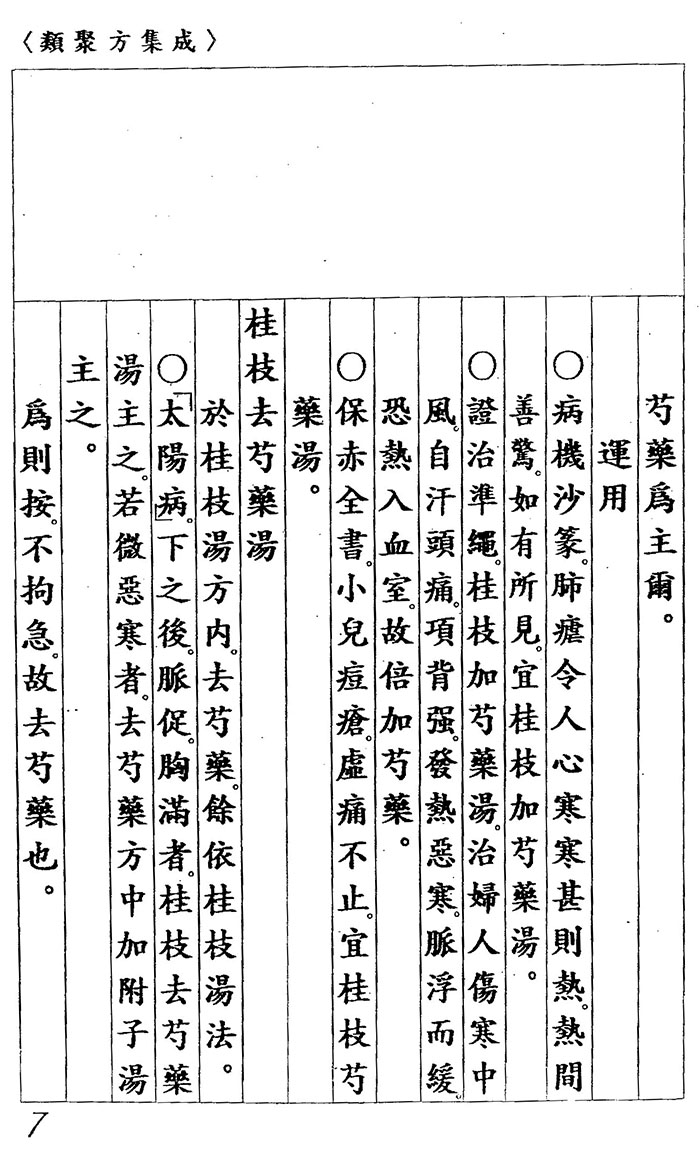 〈類聚方集成〉
芍藥爲主爾。
運用
○病機沙篆。肺瘧令人心寒寒甚則熱。熱間
善驚。如有所見。宜桂枝加芍藥湯。
○證治準繩。桂枝加芍藥湯。治婦人傷寒中
風。自汗頭痛。項背强。發熱惡寒。脈浮而緩。
恐熱入血室。故倍加芍藥。
○保赤全書。小兒痘瘡。虛痛不止。宜桂枝芍
藥湯。
桂枝去芍藥湯
於桂枝湯方内。去芍藥。餘依桂枝湯法。
○「太陽病。」下之後。脈促。胸滿者。桂枝去芍藥
湯主之。若微惡寒者。去芍藥方中加附子湯
主之。
爲則按。不拘急。故去芍藥也。
7